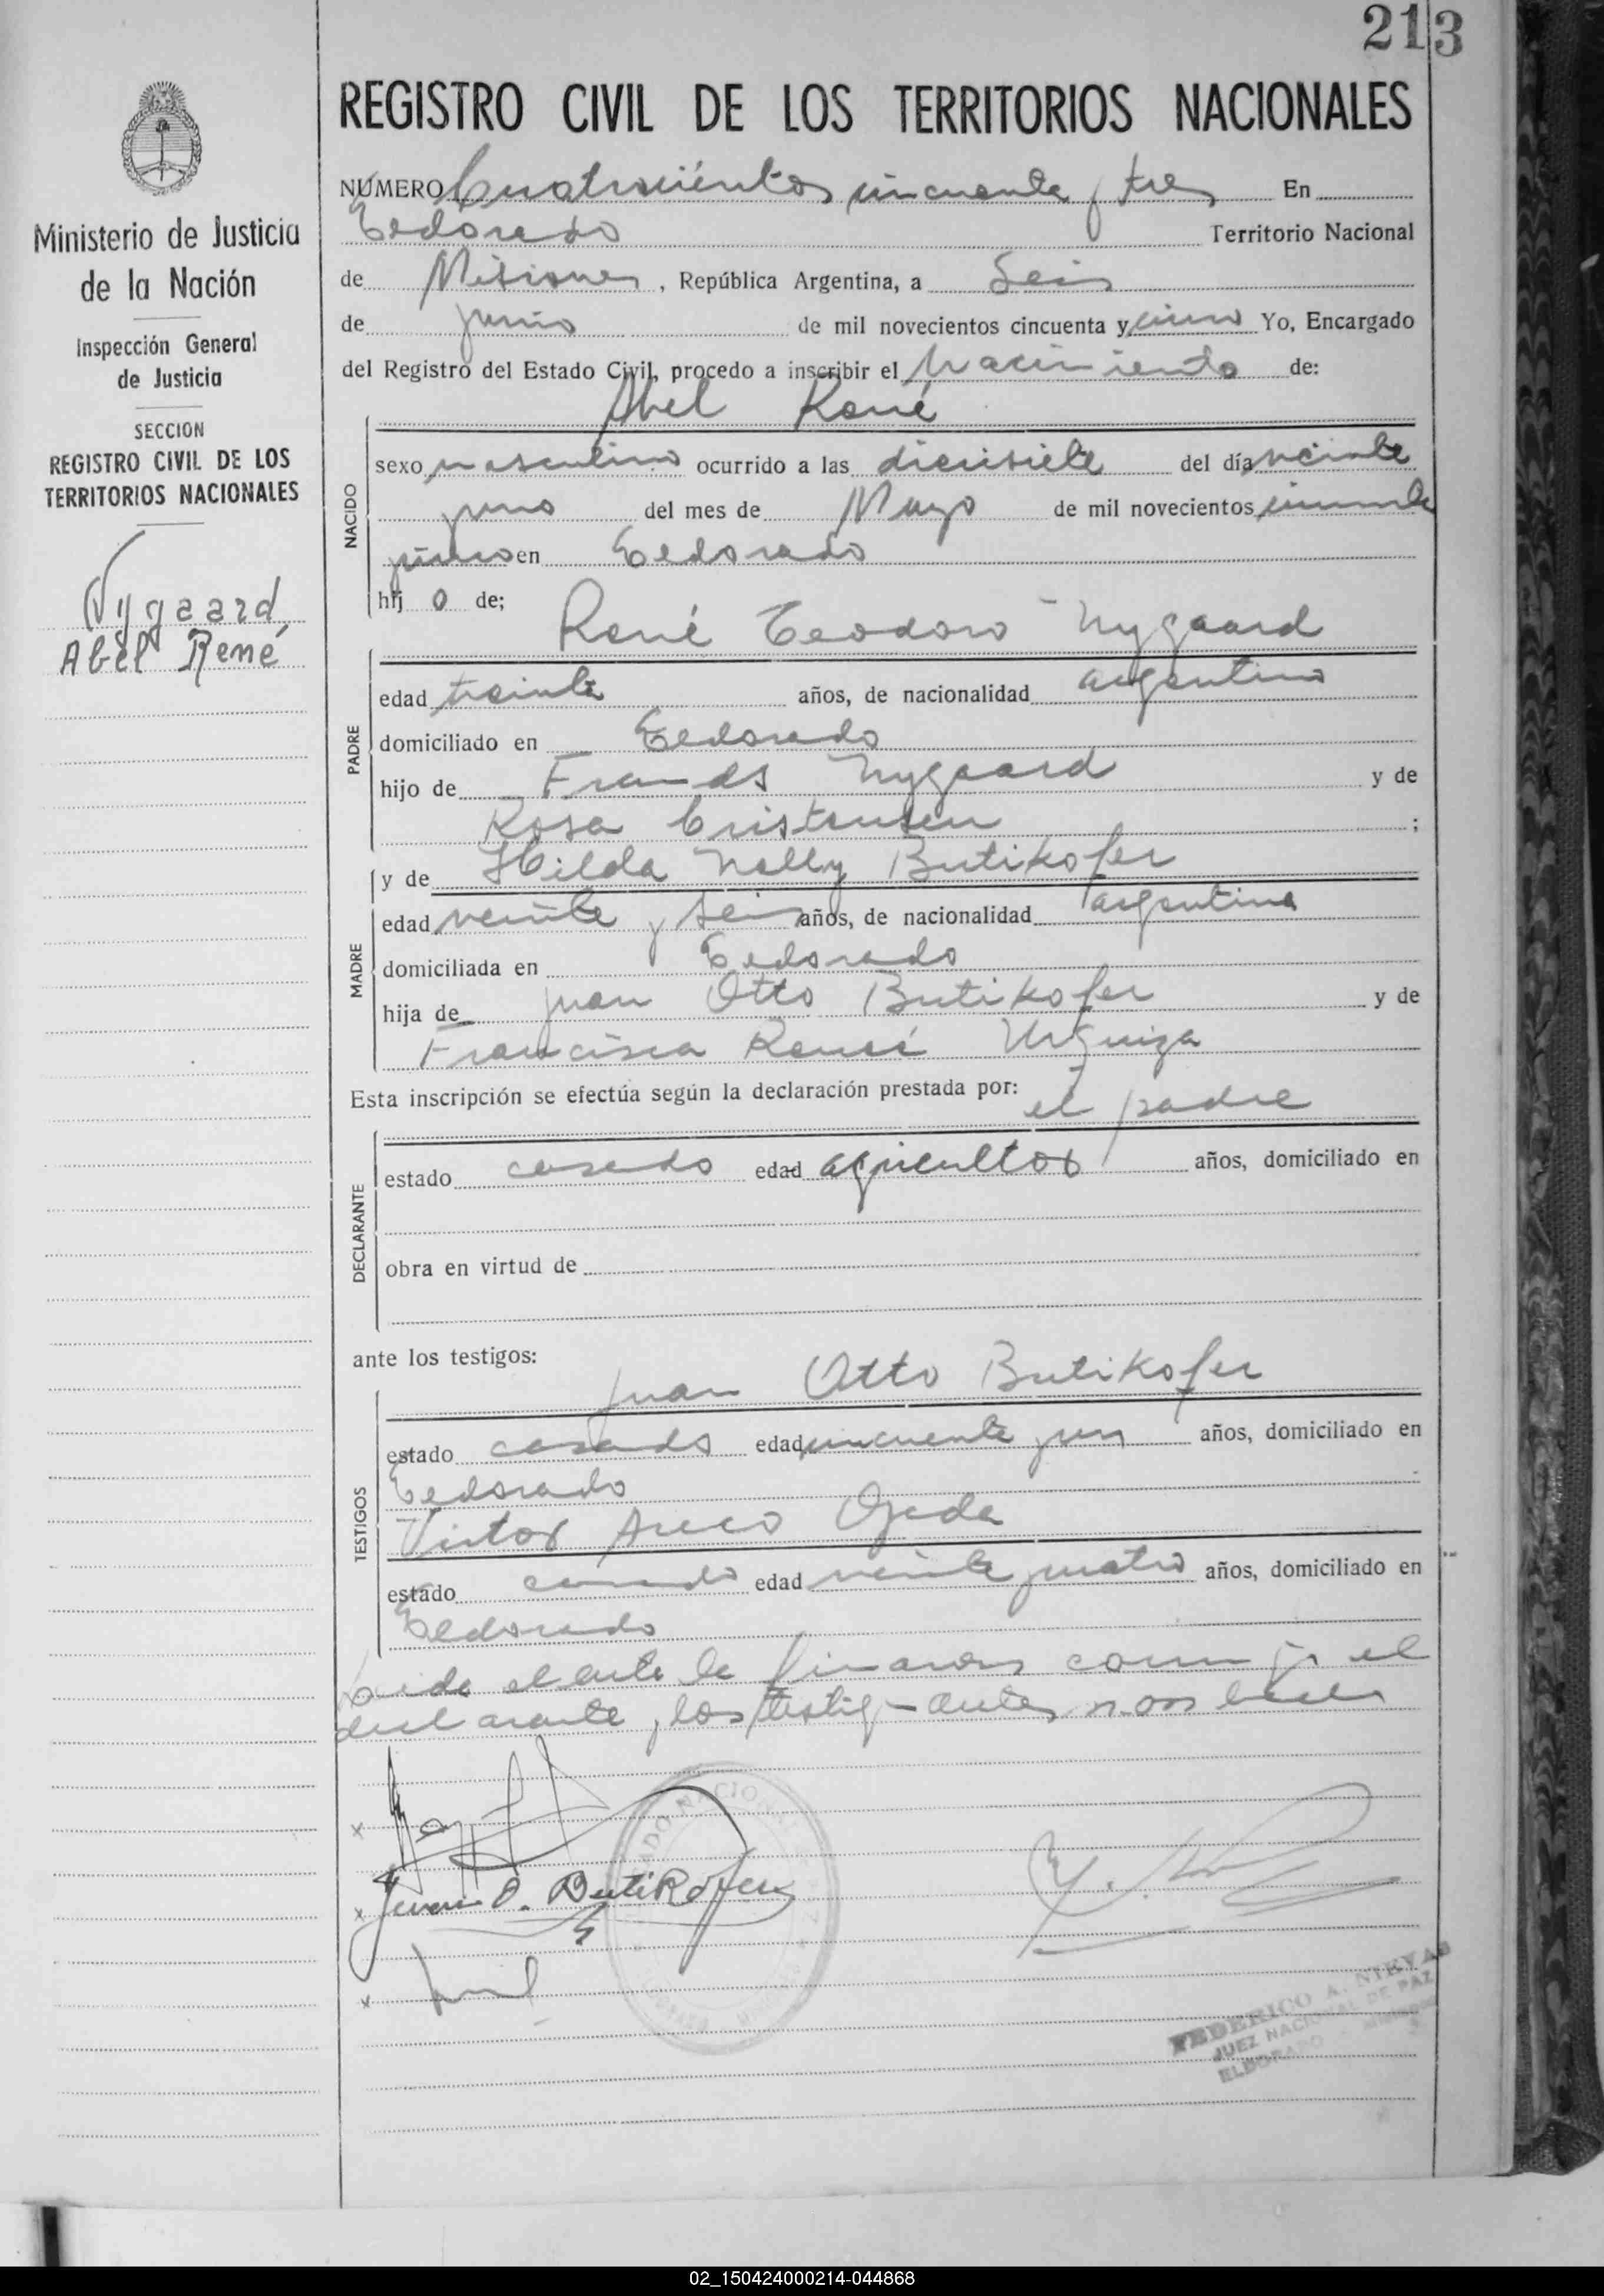 213
REGISTRO CIVIL DE LOS TERRITORIOS NACIONALES
Ministerio de Justicia
de la Nación
Inspección General
de Justicia
SECCION
REGISTRO CIVIL DE LOS
TERRITORIOS NACIONALES
Nygaard
Abel René
NÚMERO Cuatrocientos cincuenta y tres En
Eldorado Territorio Nacional
de Misiones, República Argentina, a Seis
de junio de mil novecientos cincuenta y cinco Yo, Encargado
del Registro del Estado Civil, procedo a inscribir el Nacimiento de:
Abel René
NACIDO
sexo masculino ocurrido a las diecisiete del día veinte
y uno del mes de Mayo de mil novecientos cincuenta
y cinco en Eldorado
hij o de;
René Teodoro Nygaard
PADRE
edad treinta años, de nacionalidad argentino
domiciliado en Eldorado
hijo de Frands Nygaard y de
Rosa Cristensen ;
y de Hilda Nelly Butikofer
MADRE
edad veinte y seis años, de nacionalidad argentina
domiciliada en Eldorado
hija de Juan Otto Butikofer y de
Francisca Reneé Urquiza
Esta inscripción se efectúa según la declaración prestada por:
el padre
DECLARANTE
estado casado edad agricultor años, domiciliado en
obra en virtud de
ante los testigos:
Juan Otto Butikofer
TESTIGOS
estado casado edad cincuenta y un años, domiciliado en
Eldorado
Victor Areco Ojeda
estado casado edad veinte y cuatro años, domiciliado en
Eldorado
Leida el acta la firmaron conmigo el
declarante, los testig
Juan O. Butikofer
FEDERICO A.
JUEZ NACIONAL DE PAZ
ELDORADO - MISIONES
02_150424000214-044868